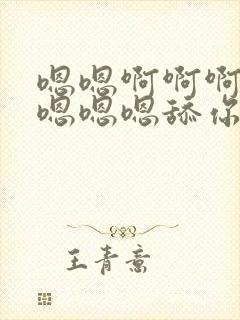 嗯嗯啊啊啊
嗯嗯嗯舔你
王青意